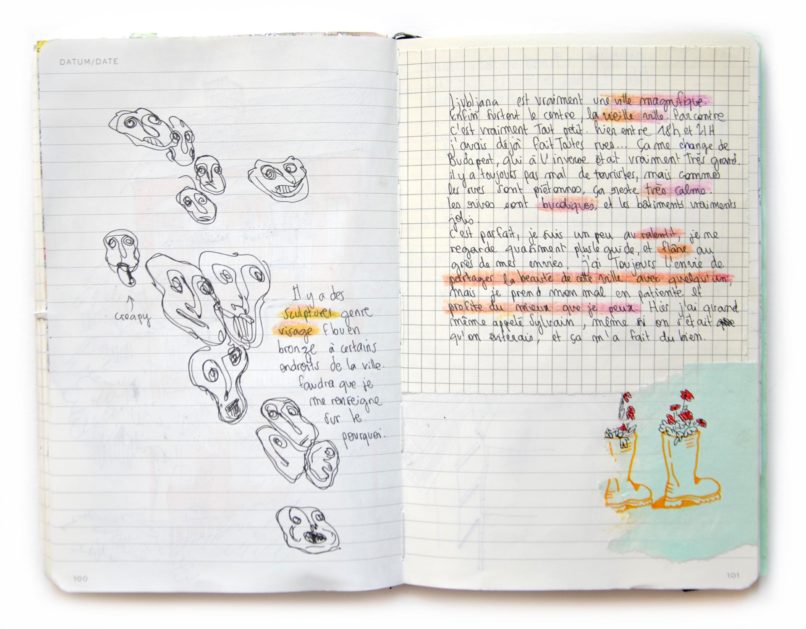 DATUM/DATE
creapy
Il y a des
sculptures genre
visage flou en
bronze à certains
endroits de la ville.
faudra que je
me renseigne
sur le
pourquoi.
100
Ljubljana est vraiment une ville magnifique
Enfin surtout le centre, la vieille ville. Par contre
c'est vraiment Tout petit. hier entre 18h et 21H
j'avais déjà fait Toutes rues... Ça me change de
Budapest, qui à l'inverse était vraiment Très grand.
il y a toujours pas mal de touristes, mais commes
les rues sont piétonnes, ça reste très calme.
les rives sont bucoliques, et les bâtiments vraiments
jolis.
c'est parfait, je suis un peu au ralentit, je ne
regarde quasiment plus le guide, et flâne au
grés de mes envies. j'ai Toujours l'envie de
partager la beauté de cette ville avec quelqu'un,
mais je prend mon mal en patiente et
profite du mieux que je peux. Hier j'ai
même appelé Sylvain, même si on s'était
qu'on et ça m'a fait du bien.
101